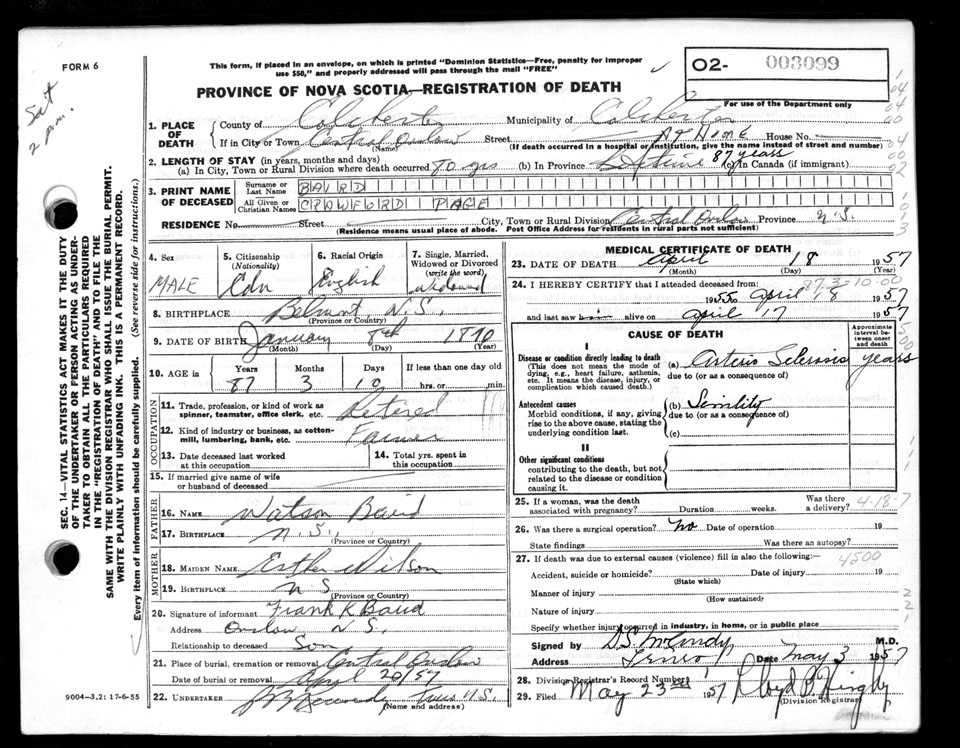 FORM 6
Sat
2 pm.
This form, if placed in an envelope, on which is printed "Dominion Statistics—Free, penalty for improper
use $50," and properly addressed will pass through the mail "FREE"
PROVINCE OF NOVA SCOTIA—REGISTRATION OF DEATH
O2- 003099
For use of the Department only
1. PLACE OF DEATH
County of Colchester Municipality of Colchester
If in City or Town Central Onslow Street At Home House No.
(Name) (If death occurred in a hospital or institution, give the name instead of street and number)
2. LENGTH OF STAY (in years, months and days)
(a) In City, Town or Rural Division where death occurred 80 yrs (b) In Province Lifetime 87 years (c) In Canada (if immigrant)
3. PRINT NAME OF DECEASED
Surname or Last Name BAIRD
All Given or Christian Names CRAWFORD PAGE
RESIDENCE No. Street City, Town or Rural Division Central Onslow Province N.S.
(Residence means usual place of abode. Post Office Address for residents in rural parts not sufficient)
4. Sex
MALE
5. Citizenship
(Nationality)
Cdn
6. Racial Origin
English
7. Single, Married, Widowed or Divorced
(write the word)
Widowed
8. BIRTHPLACE Belmont, N.S.
(Province or Country)
9. DATE OF BIRTH January 8th 1870
(Month) (Day) (Year)
10. AGE in
Years Months Days If less than one day old
87 3 10 hrs. or min.
OCCUPATION
11. Trade, profession, or kind of work as
spinner, teamster, office clerk, etc. Retired
12. Kind of industry or business, as cotton-
mill, lumbering, bank, etc. Farmer
13. Date deceased last worked
at this occupation
14. Total yrs. spent in
this occupation
15. If married give name of wife
or husband of deceased
FATHER
16. NAME Watson Baird
17. BIRTHPLACE N.S.
(Province or Country)
MOTHER
18. MAIDEN NAME Esther Wilson
19. BIRTHPLACE N S
(Province or Country)
20. Signature of informant Frank K Baird
Address Onslow N.S.
Relationship to deceased Son
21. Place of burial, cremation or removal Central Onslow
Date of burial or removal April 20/57
22. UNDERTAKER Truro N.S.
(Name and address)
MEDICAL CERTIFICATE OF DEATH
23. DATE OF DEATH April 18 1957
(Month) (Day) (Year)
24. I HEREBY CERTIFY that I attended deceased from:
87-3-10-00
1955 to April 18 1957
and last saw him alive on April 17 1957
CAUSE OF DEATH
Approximate interval between onset and death
I
Disease or condition directly leading to death
(This does not mean the mode of
dying, e.g., heart failure, asthenia,
etc. It means the disease, injury, or
complication which caused death.)
(a) Arterio Sclerosis years
due to (or as a consequence of)
Antecedent causes
Morbid conditions, if any, giving
rise to the above cause, stating the
underlying condition last.
(b) Senility
due to (or as a consequence of)
(c)
II
Other significant conditions
contributing to the death, but not
related to the disease or condition
causing it.
25. If a woman, was the death
associated with pregnancy? Duration weeks. Was there a delivery? 4-18-7
26. Was there a surgical operation? No Date of operation 19
State findings Was there an autopsy?
27. If death was due to external causes (violence) fill in also the following:— 4500
Accident, suicide or homicide? Date of injury 19
(State which)
Manner of injury
(How sustained)
Nature of injury
Specify whether injury occurred in industry, in home, or in public place
Signed by D.S. McCurdy M.D.
Address Truro Date May 3 1957
28. Division Registrar's Record Number 1
29. Filed May 23rd 1957 Lloyd B
(Division Registrar)
9004—3.2: 17-6-55
SEC. 14—VITAL STATISTICS ACT MAKES IT THE DUTY
OF THE UNDERTAKER OR PERSON ACTING AS UNDER-
TAKER TO OBTAIN ALL THE PARTICULARS REQUIRED
IN THE "REGISTRATION OF DEATH" AND TO FILE THE
SAME WITH THE DIVISION REGISTRAR WHO SHALL ISSUE THE BURIAL PERMIT.
WRITE PLAINLY WITH UNFADING INK. THIS IS A PERMANENT RECORD.
Every item of information should be carefully supplied. (See reverse side for instructions.)